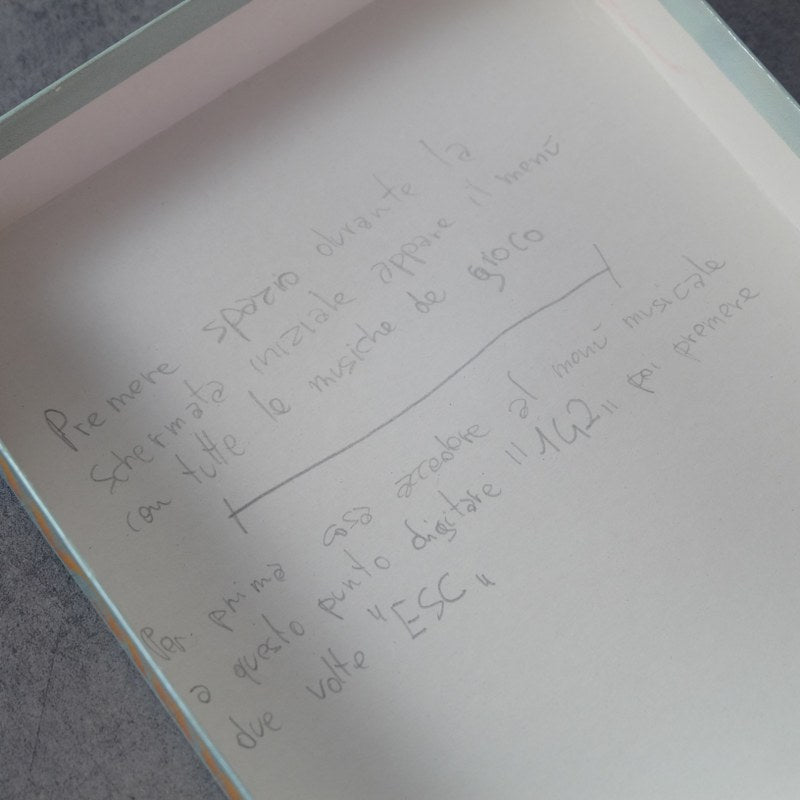 Premere spazio durante la
schermata iniziale appare il menù
con tutte le musiche de gioco
Per prima cosa accedere al menù musicale
a questo punto digitare "142" poi premere
due volte "ESC"